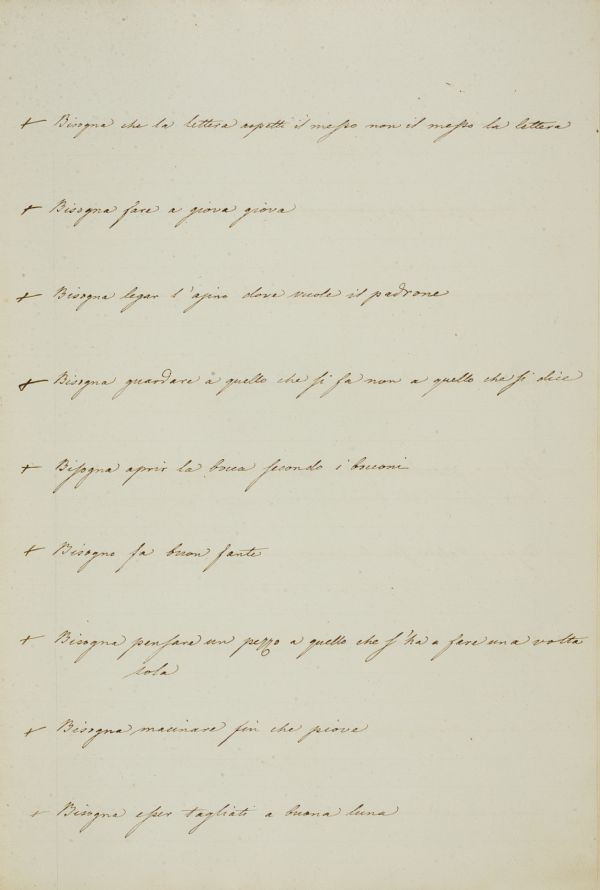 + Bisogna che la lettera aspetti il messo non il messo la lettera
+ Bisogna fare a giova giova
+ Bisogna legar l'asino dove vuole il padrone
+ Bisogna guardare a quello che si fa non a quello che si dice
+ Bisogna aprir la bocca secondo i bocconi
+ Bisogno fa buon fante
+ Bisogna pensare un pezzo a quello che s'ha a fare una volta
sola
+ Bisogna macinare fin che piove
+ Bisogna esser tagliati a buona luna